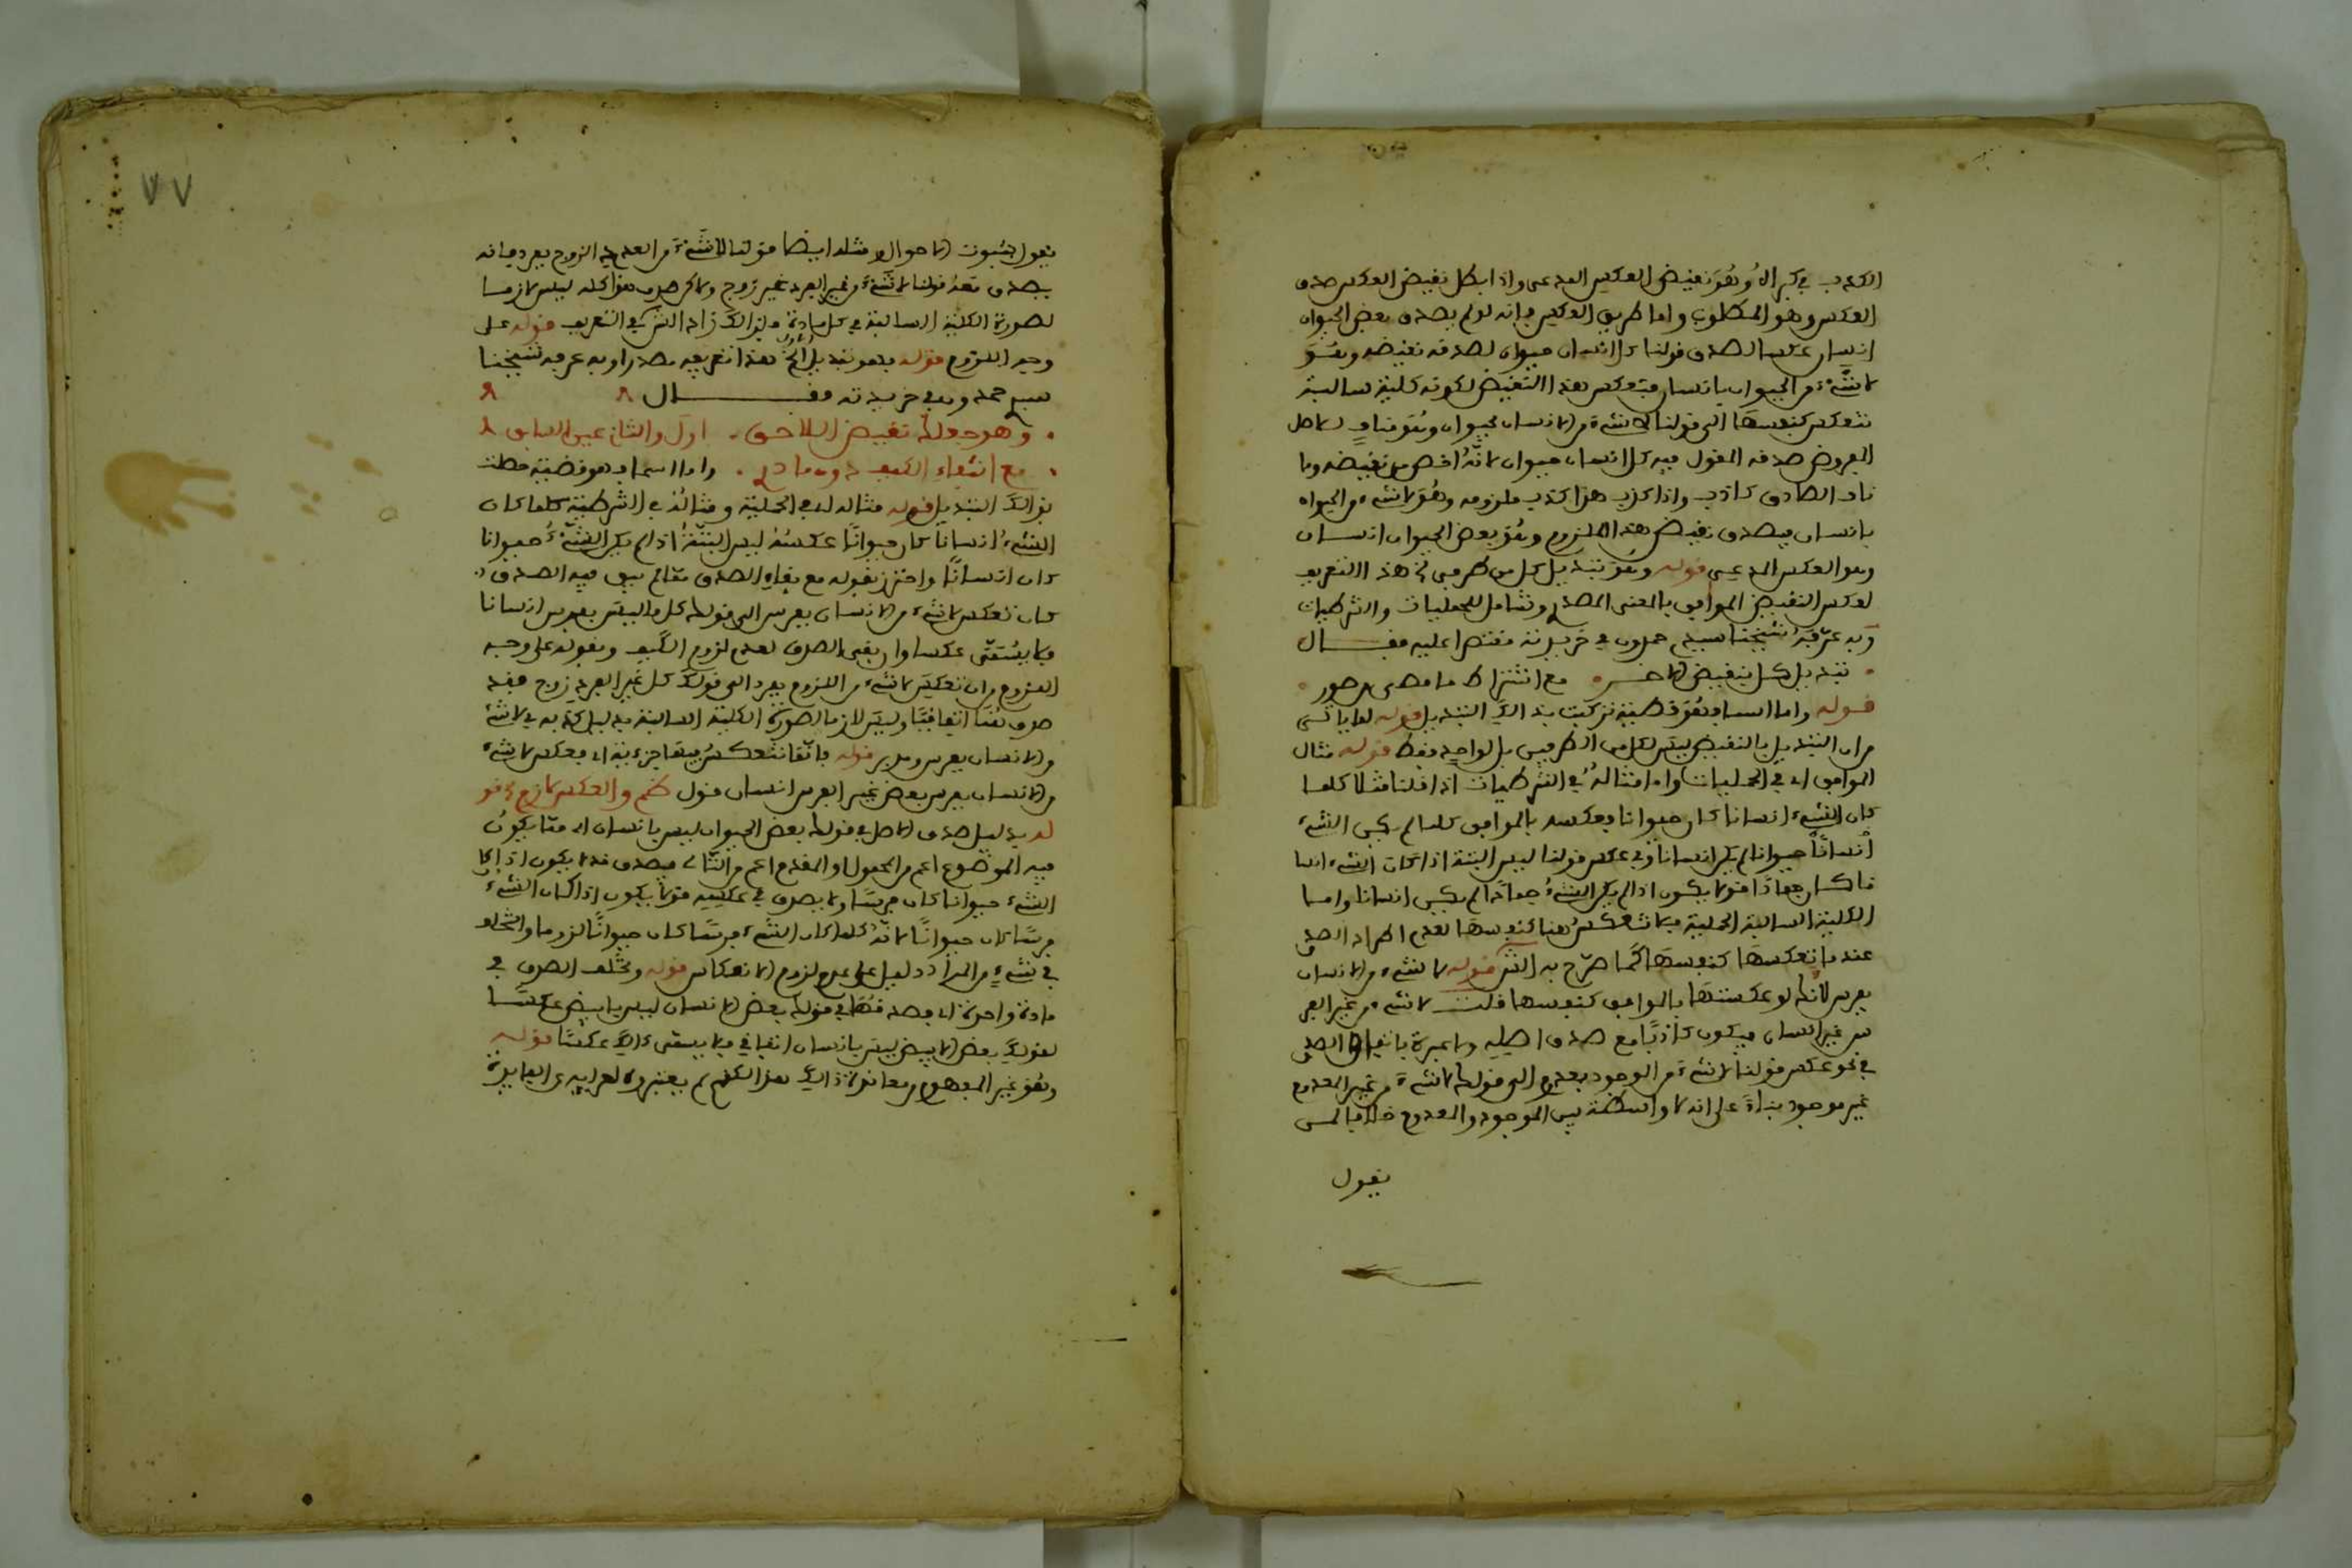 الكذب في كبراه وهو نقيض العكس المدعى واذا بطل نقيض العكس صدق
العكس وهو المطلوب واما طريق العكس فانه لو لم يصدق بعض الحيوان
انسان عكسا لصدق قولنا كل انسان حيوان لصدق نقيضه وهو
لا شيء من الحيوان بانسان فتعكس هذا النقيض لكونه كلية سالبة
تنعكس كنفسها الى قولنا لا شيء من الانسان بحيوان وهو مناف للاصل
المفروض صدقه المقول فيه كل انسان حيوان لانه اخص من نقيضه وما
نافى الصادق كاذب واذا كذب هذا كذب ملزومه وهو لا شيء من الحيوان
بانسان فيصدق نقيض هذا الملزوم وهو بعض الحيوان انسان
وهو العكس المدعى قوله وهو تبديل كل من طرفي الخ هذا التعريف
لعكس النقيض الموافق بالمعنى المصدري وشامل للحمليات والشرطيات
وبه عرفه شيخنا سيدي حمدون في خريدته مقتصرا عليه فقال
تبديل كل بنقيض الاخر مع اشتراط ما مضى من صور
قوله واما اسما فهو قضية تركبت بذالك التبديل قوله لما ياتي
من ان التبديل بالنقيض ليس لكل من الطرفين بل لواحد فقط قوله مثال
الموافق اي في الحمليات واما مثاله في الشرطيات اذا قلنا مثلا كلما
كان الشيء انسانا كان حيوانا فعكسه بالموافق كلما لم يكن الشيء
حيوانا لم يكن انسانا وفي عكس قولنا ليس البتة اذا كان الشيء انسا
نا كان جمادا قد لا يكون اذا لم يكن الشيء جمادا لم يكن انسانا واما
الكلية السالبة الحملية فلا تنعكس هنا كنفسها لعدم اطراد الصدق
عند ما تعكسها كنفسها كما صرح به الش قوله لا شيء من الانسان
بفرس لانك لو عكستها بالموافق كنفسها قلت لا شيء من غير الفر
س غير انسان فيكون كاذبا مع صدق اصله ولا عبرة باتفاق الصدق
في نحو عكس قولنا لا شيء من الوجود بعدم الى قولك لا شيء من غير المعدوم
غير موجود بناء على انه لا واسطة بين الموجود والمعدوم خلافا لمن
يقول
٧٧
يقول بثبوت الاحوال ومثله ايضا قولنا لا شيء من العدد الزوج بفرد فانه
يصدق معه قولنا لا شيء من غير الفرد غير زوج ولاكن صدق هذا كله ليس لازما
لصورة الكلية السالبة في كل مادة ولذالك زاد الش في التعريف قوله على
وجه اللزوم قوله فهو تبديل الخ هذا تعريفه مصدرا وبه عرفه شيخنا
سيدي حمدون في خريدته فقال
وهو جعلك نقيض اللاحق اول والثان عين السابق
مع انتفاء الكيف دون مادر واما اسما فهو قضية حصلت
بذالك التبديل قوله مثاله اي في الحملية ومثاله في الشرطية كلما كان
الشيء انسانا كان حيوانا عكسه ليس البتة اذا لم يكن الشيء حيوانا
كان انسانا واحترز بقوله مع بقاء الصدق مما لم يبق فيه الصدق
كان تعكس لا شيء من الانسان بفرس الى قولك كل ما ليس بفرس انسانا
فلا يسمى عكسا وان بقي الصدق لعدم لزوم الكيف وبقوله على وجه
اللزوم من ان تعكس لا شيء من الزوج بفرد الى قولك كل غير الفرد زوج فقد
صدق هنا اتفاقيا وليس لازما لصورة الكلية السالبة بدليل كذبه في لا شيء
من الانسان بفرس قوله فانها تنعكس فيها جزءية اي فعكس لا شيء
من الانسان بفرس بعض غير الفرس انسان قول والعكس لازم الخ قو
له بدليل صدق الاصل في قولك بعض الحيوان ليس بانسان اي مما يكون
فيه الموضوع اعم من المحمول او المقدم اعم من التالي فيصدق قد لا يكون اذا كا
الشيء حيوانا كان فرسا ولا يصدق في عكسه قد لا يكون اذا كان الشيء
فرسا كان حيوانا لانه كلما كان الشيء فرسا كان حيوانا لزوما والتخلف
في شيء من المواد دليل على عدم لزوم الانعكاس قوله وتخلف الصدق في
مادة واحدة اي فصدقها في قولك بعض الانسان ليس بابيض عكسا
لقولك بعض الابيض ليس بانسان اتفاقي فلا يسمى ذالك عكسا قوله
وهو غير المفهوم معاند ذالك لعدم لم يعتبروه لعرايه عن الفايدة